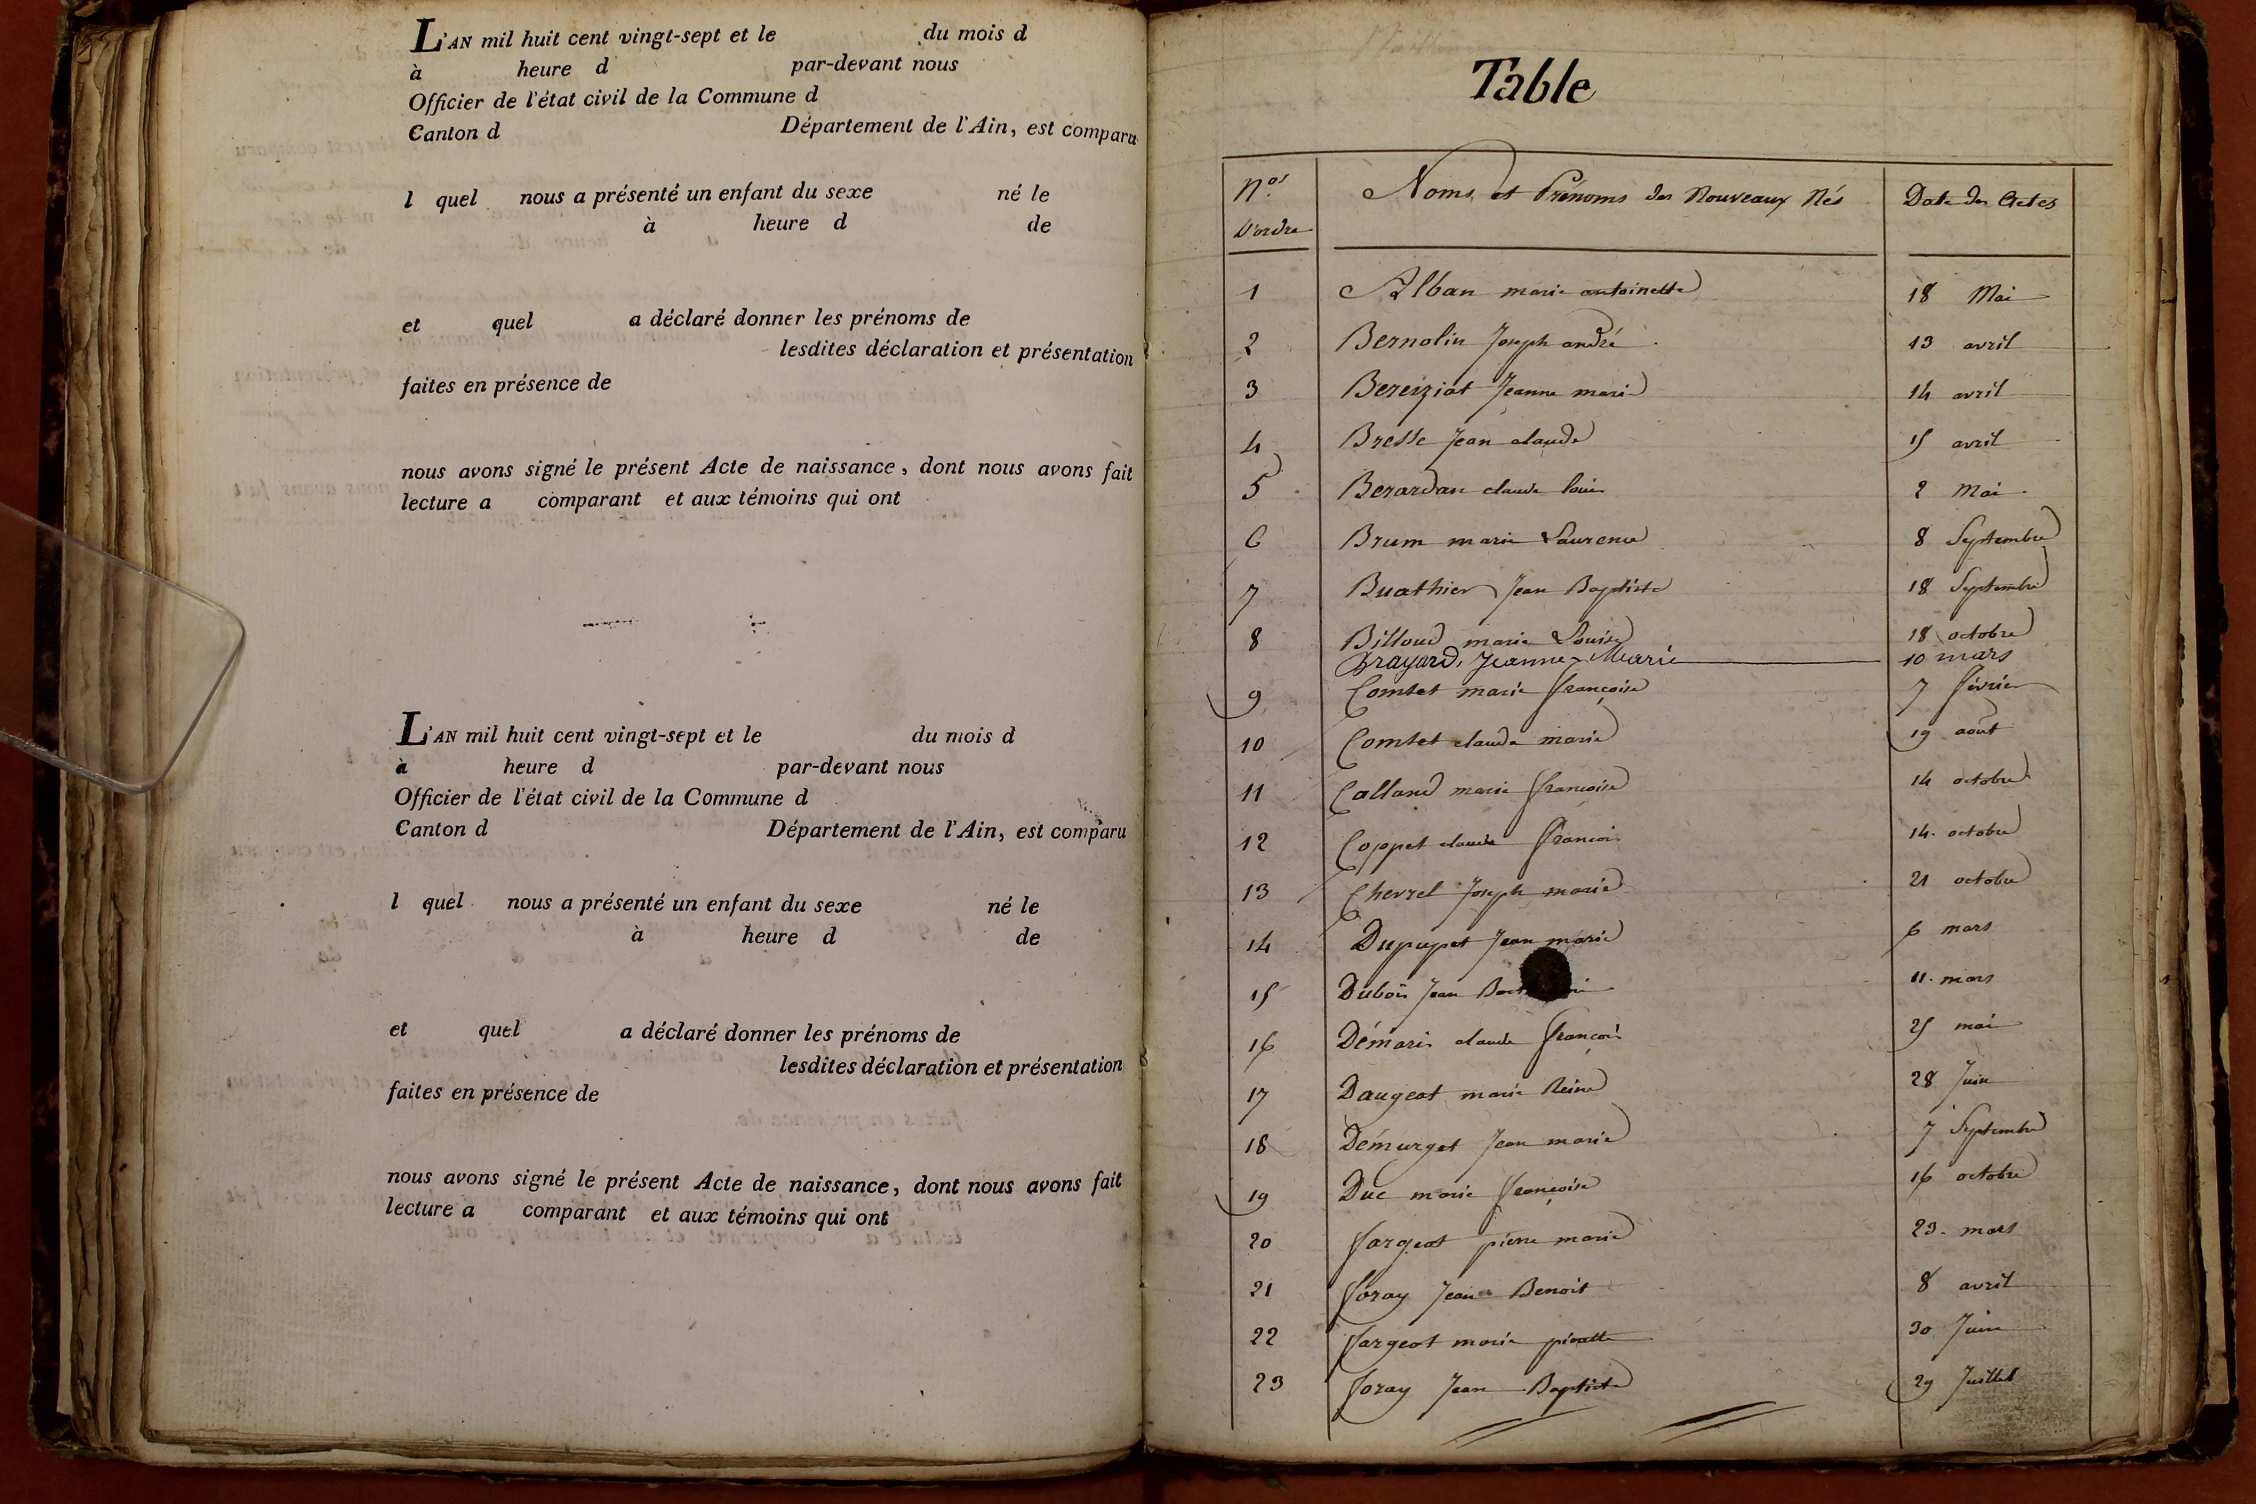 L'AN mil huit cent vingt-sept et le du mois d
à heure d par-devant nous
Officier de l'état civil de la Commune d
Canton d Département de l'Ain, est comparu
l quel nous a présenté un enfant du sexe né le
à heure d de
et quel a déclaré donner les prénoms de
lesdites déclaration et présentation
faites en présence de
nous avons signé le présent Acte de naissance, dont nous avons fait
lecture a comparant et aux témoins qui ont
L'AN mil huit cent vingt-sept et le du mois d
à heure d par-devant nous
Officier de l'état civil de la Commune d
Canton d Département de l'Ain, est comparu
l quel nous a présenté un enfant du sexe né le
à heure d de
et quel a déclaré donner les prénoms de
lesdites déclaration et présentation
faites en présence de
nous avons signé le présent Acte de naissance, dont nous avons fait
lecture a comparant et aux témoins qui ont
Table
Nos Noms et Prénoms des Nouveaux Nés Date des Actes
d'ordre
1 Alban marie antoinette 18 Mai
2 Bernolin Joseph andré 13 avril
3 Bereiziat Jeanne marie 14 avril
4 Bresse Jean claude 15 avril
5 Berardan claude louis 2 Mai
6 Brum marie Laurence 8 Septembre
7 Buathier Jean Baptiste 18 Septembre
8 Billoud marie Louise 18 octobre
Brayard, Jeanne-Marie 10 mars
9 Comtet marie françoise 7 février
10 Comtet claude marie 19 août
11 Calland marie françoise 14 octobre
12 Coppet claude françois 14 octobre
13 Chevrel Joseph marie 21 octobre
14 Dupupet Jean marie 6 mars
15 Dubois Jean 11 mars
16 Démaris claude françois 25 mai
17 Daugeat marie Reine 28 Juin
18 Démurget Jean marie 7 Septembre
19 Duc marie françoise 16 octobre
20 fargeot pierre marie 23 mars
21 foray Jean Benoit 8 avril
22 fargeot marie pierrette 30 Juin
23 foray Jean Baptiste 29 Juillet